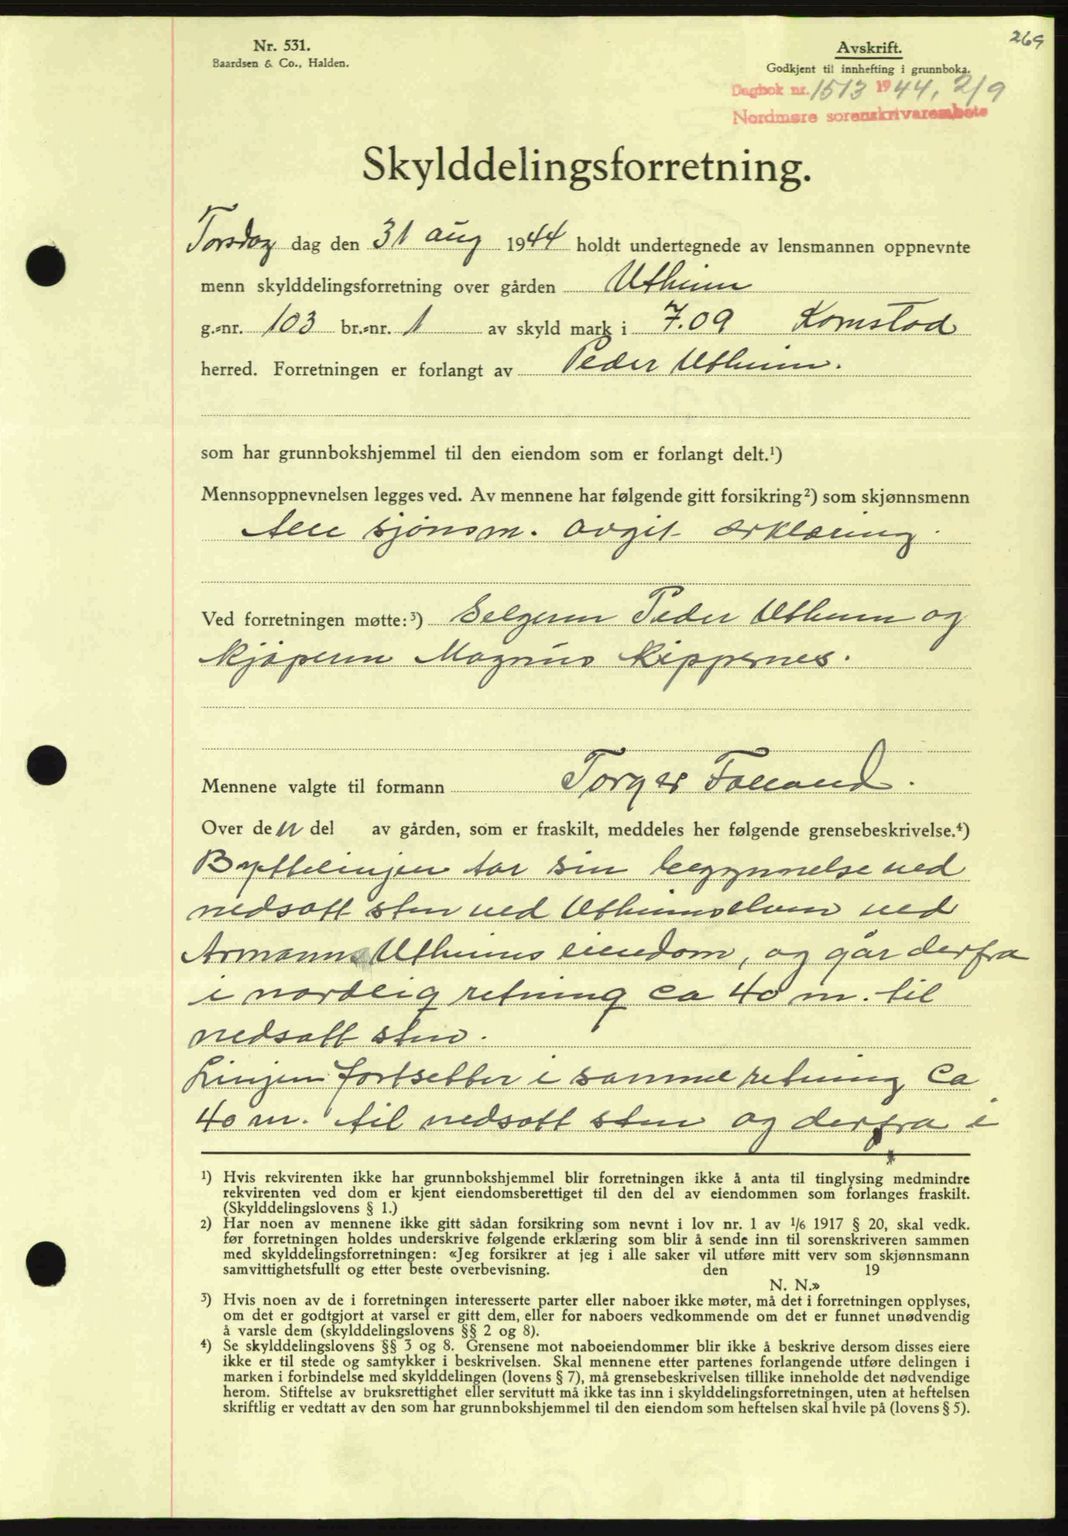 269
Nr. 531.
Baardsen & Co., Halden.
Avskrift.
Godkjent til innhefting i grunnboka.
Dagbok nr. 1513 1944, 2/9
Nordmøre sorenskrivarembete
Skylddelingsforretning.
Torsdag dag den 31 aug 1944 holdt undertegnede av lensmannen oppnevnte
menn skylddelingsforretning over gården Utheim
g.-nr. 103 br.-nr. 1 av skyld mark i 7.09 Kornstad
herred. Forretningen er forlangt av Peder Utheim.
som har grunnbokshjemmel til den eiendom som er forlangt delt.¹)
Mennsoppnevnelsen legges ved. Av mennene har følgende gitt forsikring²) som skjønnsmenn
Alle sjønsm. avgit erklæring.
Ved forretningen møtte:³) Selgeren Peder Utheim og
kjøperen Magnus Kippernes.
Mennene valgte til formann Torger Folland.
Over den del av gården, som er fraskilt, meddeles her følgende grensebeskrivelse.⁴)
Byttelinjen tar sin begynnelse ved
nedsatt sten ved Utheimselven ved
Armanns Utheims eiendom, og går derfra
i nordlig retning ca 40 m. til
nedsatt sten.
Linjen fortsetter i samme retning ca
40 m. til nedsatt sten og derfra i
¹) Hvis rekvirenten ikke har grunnbokshjemmel blir forretningen ikke å anta til tinglysing medmindre
rekvirenten ved dom er kjent eiendomsberettiget til den del av eiendommen som forlanges fraskilt.
(Skylddelingslovens § 1.)
²) Har noen av mennene ikke gitt sådan forsikring som nevnt i lov nr. 1 av 1/6 1917 § 20, skal vedk.
før forretningen holdes underskrive følgende erklæring som blir å sende inn til sorenskriveren sammen
med skylddelingsforretningen: «Jeg forsikrer at jeg i alle saker vil utføre mitt verv som skjønnsmann
samvittighetsfullt og etter beste overbevisning. den 19
N. N.»
³) Hvis noen av de i forretningen interesserte parter eller naboer ikke møter, må det i forretningen opplyses,
om det er godtgjort at varsel er gitt dem, eller for naboers vedkommende om det er funnet unødvendig
å varsle dem (skylddelingslovens §§ 2 og 8).
⁴) Se skylddelingslovens §§ 3 og 8. Grensene mot naboeiendommer blir ikke å beskrive dersom disses eiere
ikke er til stede og samtykker i beskrivelsen. Skal mennene etter partenes forlangende utføre delingen i
marken i forbindelse med skylddelingen (lovens § 7), må grensebeskrivelsen tillike inneholde det nødvendige
herom. Stiftelse av bruksrettighet eller servitutt må ikke tas inn i skylddelingsforretningen, uten at heftelsen
skriftlig er vedtatt av den som har grunnbokshjemmel til den eiendom som heftelsen skal hvile på (lovens § 5).